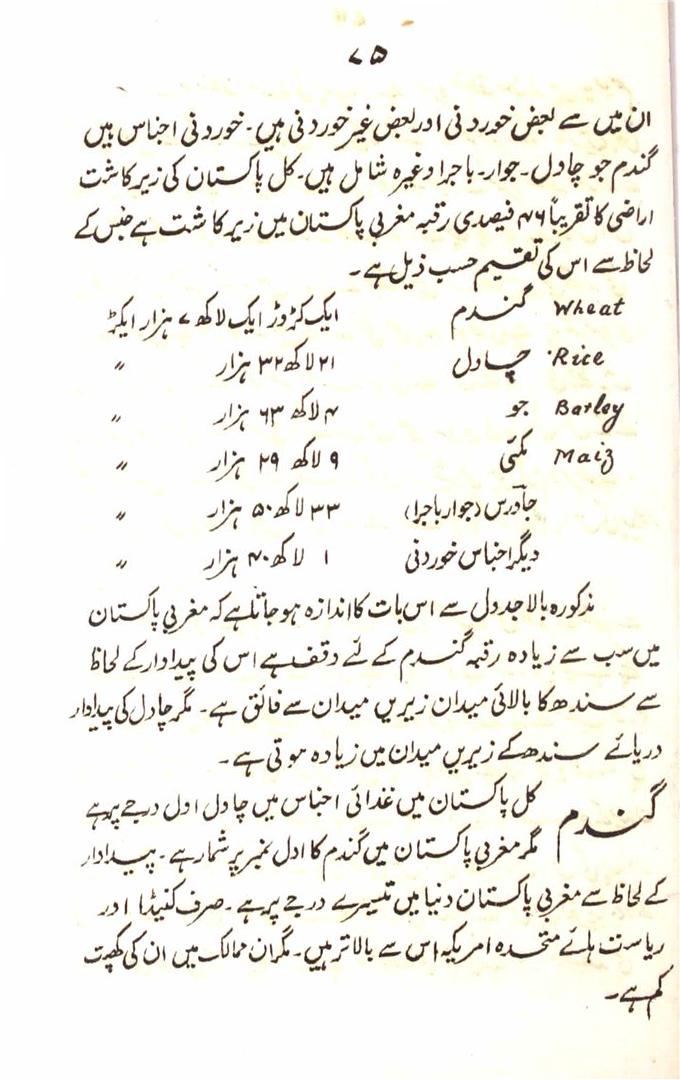 ۷۵
ان میں سے بعض خوردنی اور بعض غیر خوردنی ہیں۔ خوردنی اجناس ہیں
گندم جو چاول۔ جوار۔ باجرا وغیرہ شامل ہیں۔ کل پاکستان کی زیر کاشت
اراضی کا تقریباً ۴۶ فیصدی رقبہ مغربی پاکستان میں زیر کاشت ہے جنس کے
لحاظ سے اس کی تقسیم حسب ذیل ہے۔
Wheat گندم ایک کروڑ ایک لاکھ ۷ ہزار ایکڑ
Rice چاول ۲۱ لاکھ ۳۲ ہزار "
Barley جو ۴ لاکھ ۶۳ ہزار "
Maiz مکئی ۹ لاکھ ۲۹ ہزار "
جاورس (جوار باجرا) ۳۳ لاکھ ۵۰ ہزار "
دیگر اجناس خوردنی ۱ لاکھ ۴۰ ہزار "
مذکورہ بالا جدول سے اس بات کا اندازہ ہو جاتا ہے کہ مغربی پاکستان
میں سب سے زیادہ رقبہ گندم کے لئے وقف ہے اس کی پیداوار کے لحاظ
سے سندھ کا بالائی میدان زیریں میدان سے فائق ہے۔ مگر چاول کی پیداوار
دریائے سندھ کے زیریں میدان میں زیادہ ہوتی ہے۔
گندم کل پاکستان میں غذائی اجناس میں چاول اول درجے پر ہے
مگر مغربی پاکستان میں گندم کا اول نمبر پر شمار ہے۔ پیداوار
کے لحاظ سے مغربی پاکستان دنیا میں تیسرے درجے پر ہے۔ صرف کنیڈا اور
ریاست ہائے متحدہ امریکہ اس سے بالاتر ہیں۔ مگر ان ممالک میں ان کی کھپت
کم ہے۔